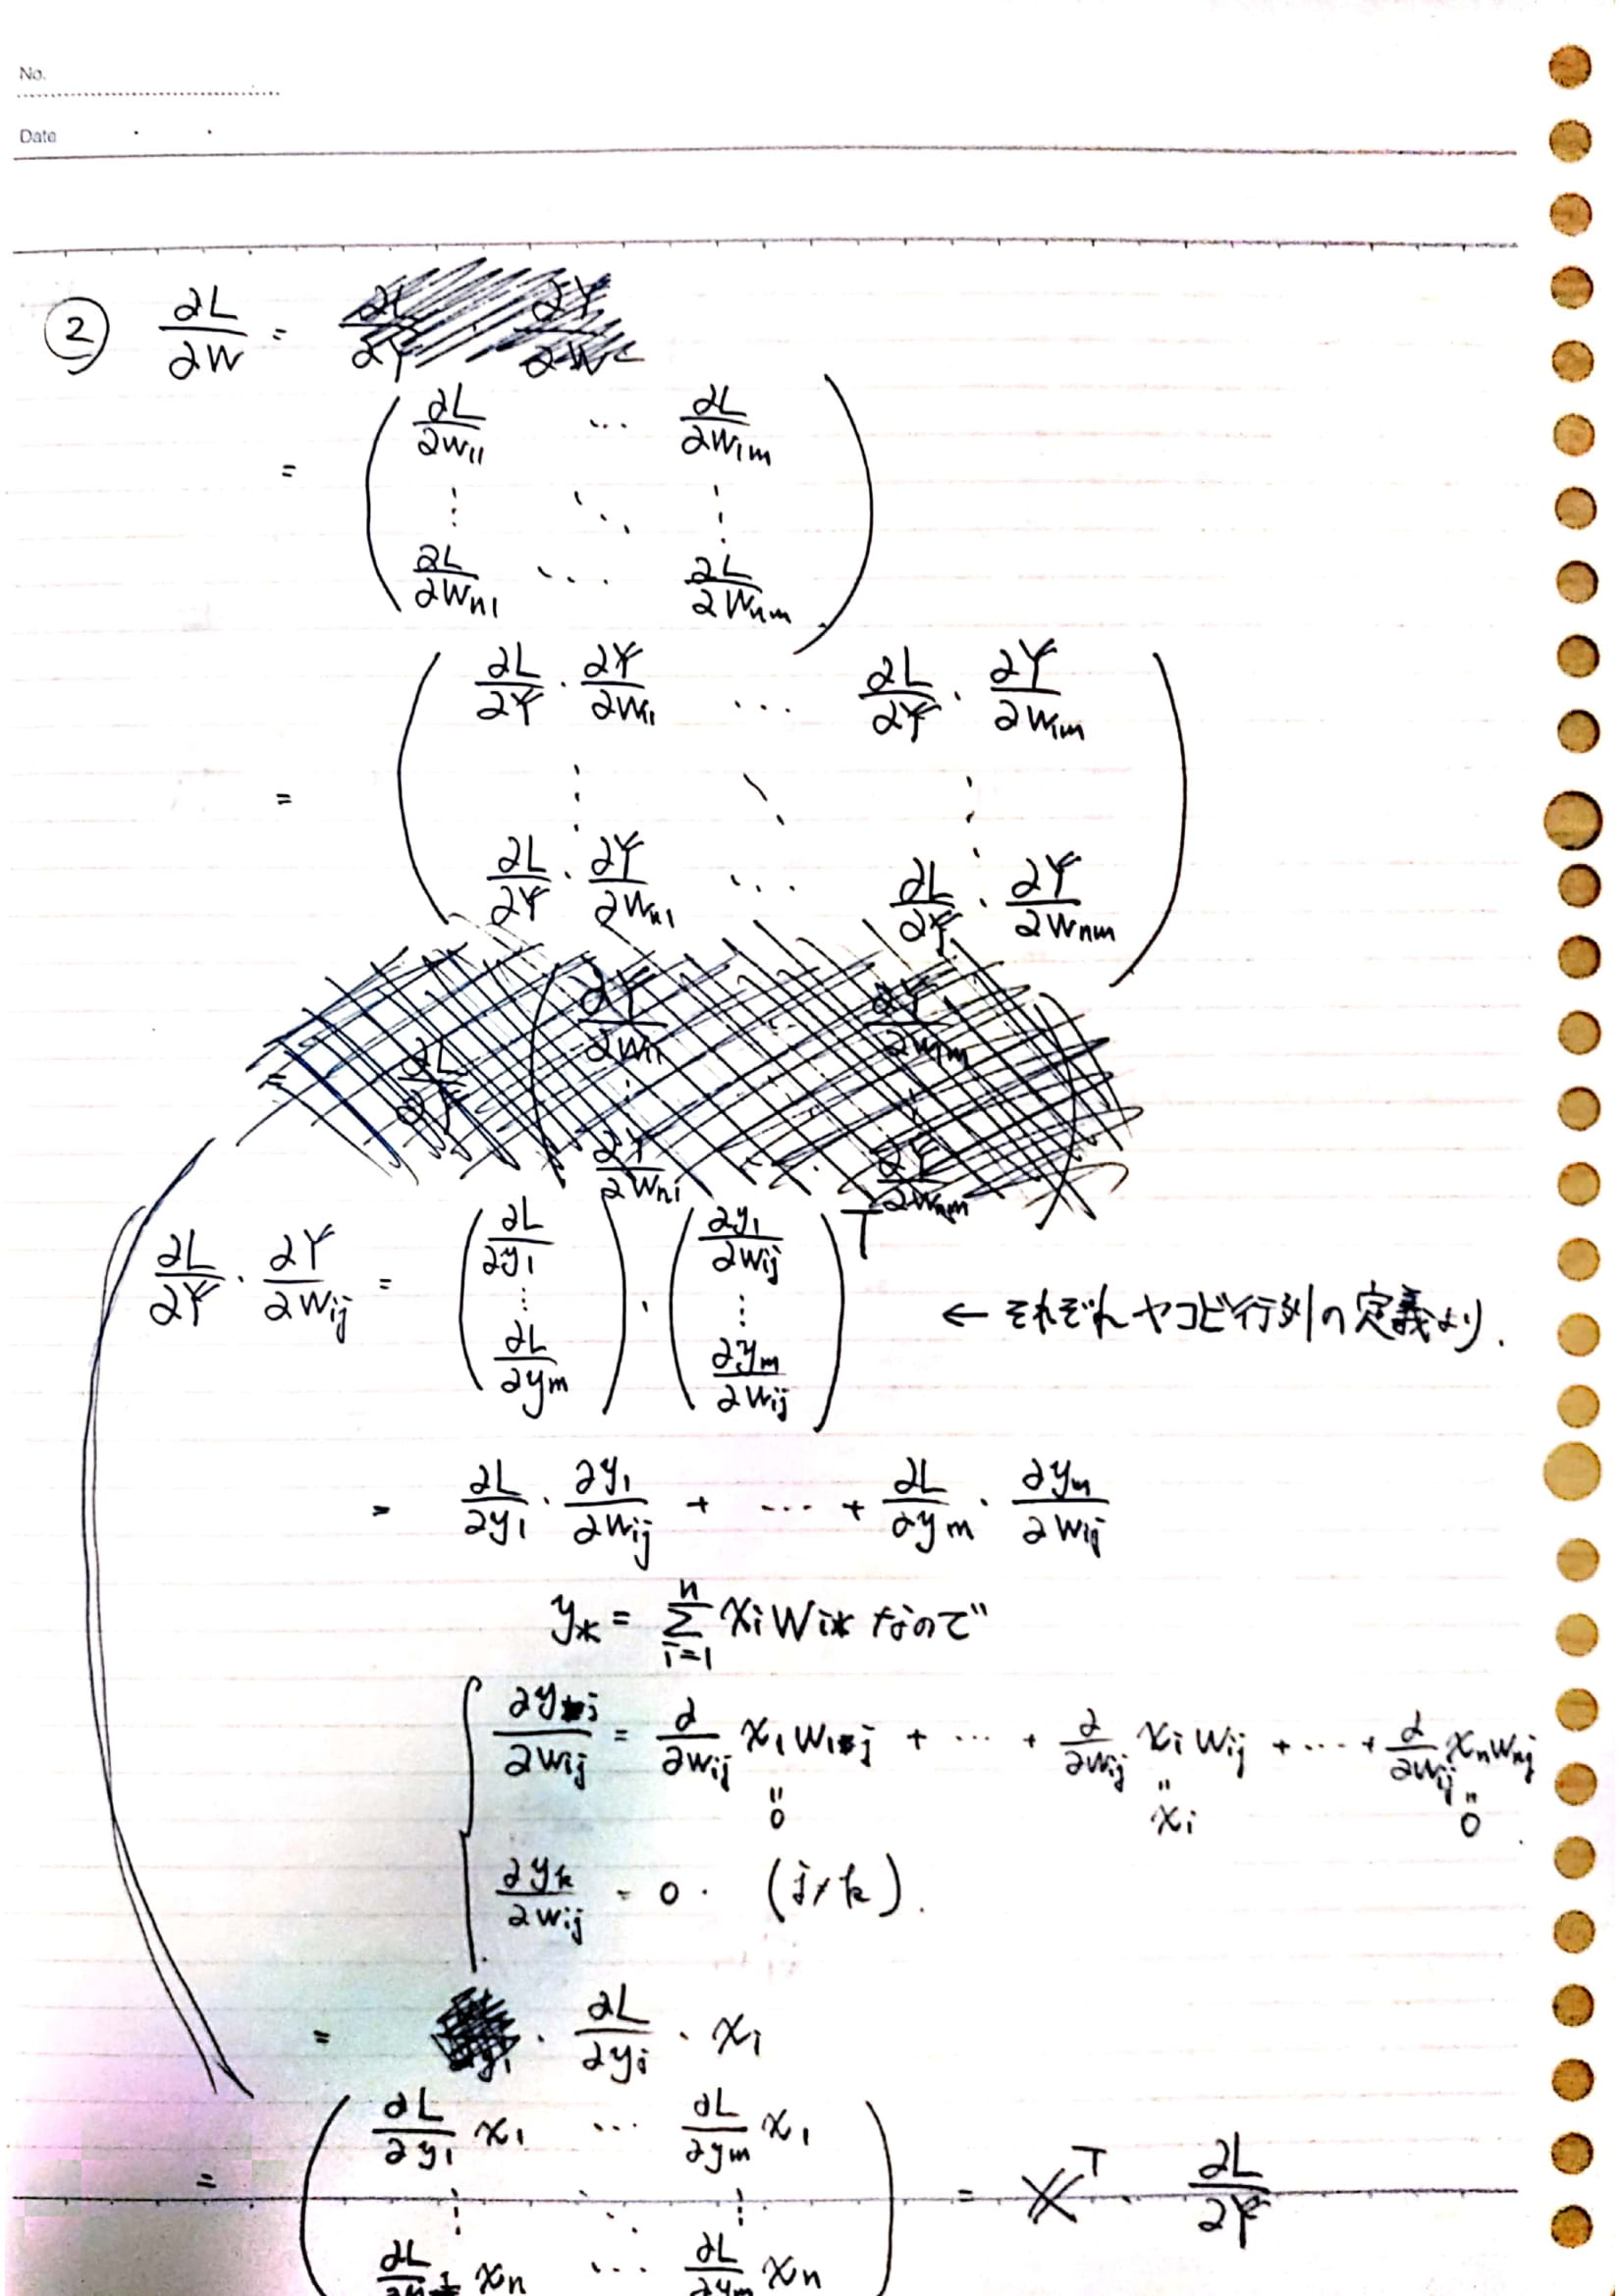 No.
Date
② ∂L/∂W =
= ( ∂L/∂w₁₁ … ∂L/∂w₁ₘ
⋮ ⋱ ⋮
∂L/∂wₙ₁ … ∂L/∂wₙₘ )
= ( ∂L/∂Y · ∂Y/∂w₁₁ … ∂L/∂Y · ∂Y/∂w₁ₘ
⋮ ⋱ ⋮
∂L/∂Y · ∂Y/∂wₙ₁ … ∂L/∂Y · ∂Y/∂wₙₘ )
∂L/∂Y · ∂Y/∂wᵢⱼ = ( ∂L/∂y₁ ⋮ ∂L/∂yₘ ) · ( ∂y₁/∂wᵢⱼ ⋮ ∂yₘ/∂wᵢⱼ )ᵀ ← それぞれヤコビ行列の定義より.
= ∂L/∂y₁ · ∂y₁/∂wᵢⱼ + … + ∂L/∂yₘ · ∂yₘ/∂wᵢⱼ
y* = Σⁿᵢ₌₁ xᵢ wᵢ* なので
{ ∂yⱼ/∂wᵢⱼ = ∂/∂wᵢⱼ x₁w₁ⱼ + … + ∂/∂wᵢⱼ xᵢwᵢⱼ + … + ∂/∂wᵢⱼ xₙwₙⱼ
〃 0 〃 xᵢ 〃 0
∂yₖ/∂wᵢⱼ = 0. (j≠k).
= · ∂L/∂yⱼ · xᵢ
= ( ∂L/∂y₁ x₁ … ∂L/∂yₘ x₁
⋮ ⋱ ⋮
∂L/∂y₁ xₙ … ∂L/∂yₘ xₙ ) = Xᵀ · ∂L/∂Y